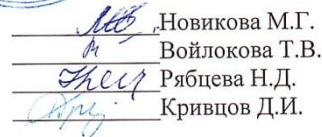 Новикова М.Г.
Войлокова Т.В.
Рябцева Н.Д.
Кривцов Д.И.